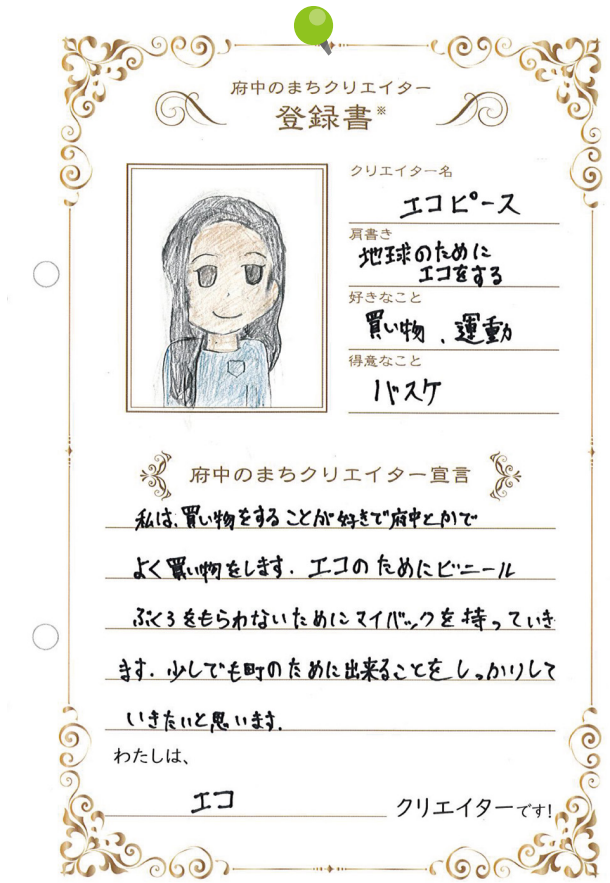 府中のまちクリエイター
登録書※
クリエイター名
エコピース
肩書き
地球のために
エコをする
好きなこと
買い物、運動
得意なこと
バスケ
府中のまちクリエイター宣言
私は、買い物をすることが好きで府中とかで
よく買い物をします。エコのためにビニール
ぶくろをもらわないためにマイバックを持っていき
ます。少しでも町のために出来ることをしっかりして
いきたいと思います。
わたしは、
エコ クリエイターです!